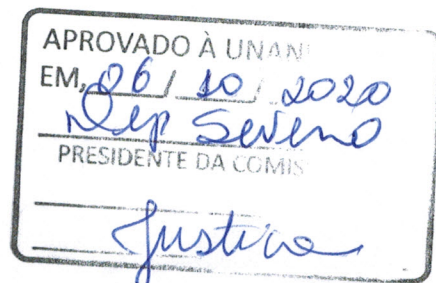 APROVADO À UNAN
EM, 06 / 10 / 2020
Dep Severo
PRESIDENTE DA COMIS
Justiça